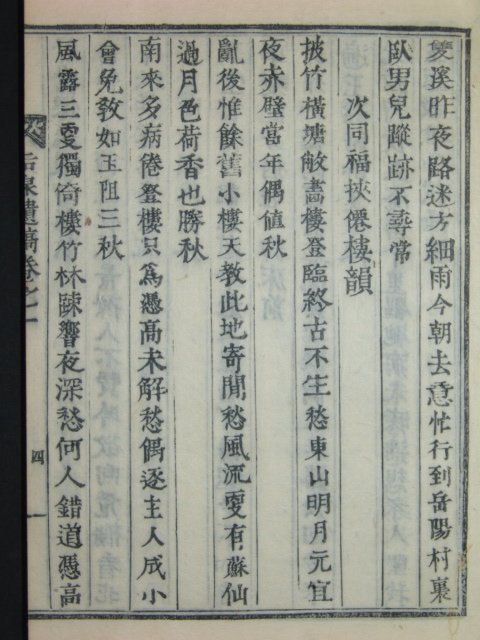 雙溪昨夜路迷方細雨今朝去意忙行到岳陽村裏
臥男兒蹤跡不尋常
次同福挾僊樓韻
披竹橫塘敞畵樓登臨終古不生愁東山明月元宜
夜赤壁當年偶値秋
亂後惟餘舊小樓天敎此地寄閒愁風流更有蘇仙
過月色荷香也勝秋
南來多病倦登樓只爲憑高未解愁偶逐主人成小
會免敎如玉阻三秋
風露三更獨倚樓竹林踈響夜深愁何人錯道憑高
后泉遺稿卷之一
四